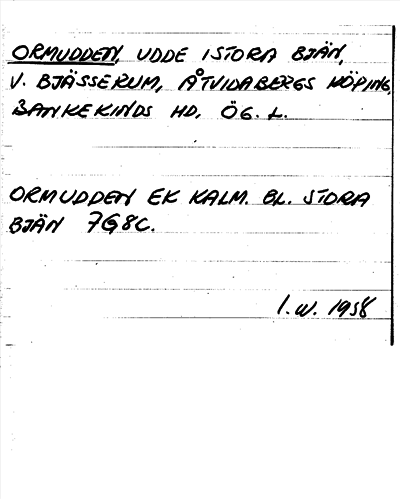 ORMUDDEN, UDDE I STORA BJÄN,
V. BJÄSSERUM, ÅTVIDABERGS KÖPING,
BANKEKINDS HD. ÖG. L.
ORMUDDEN EK KALM. BL. STORA
BJÄN 7G8C.
I. W. 1958